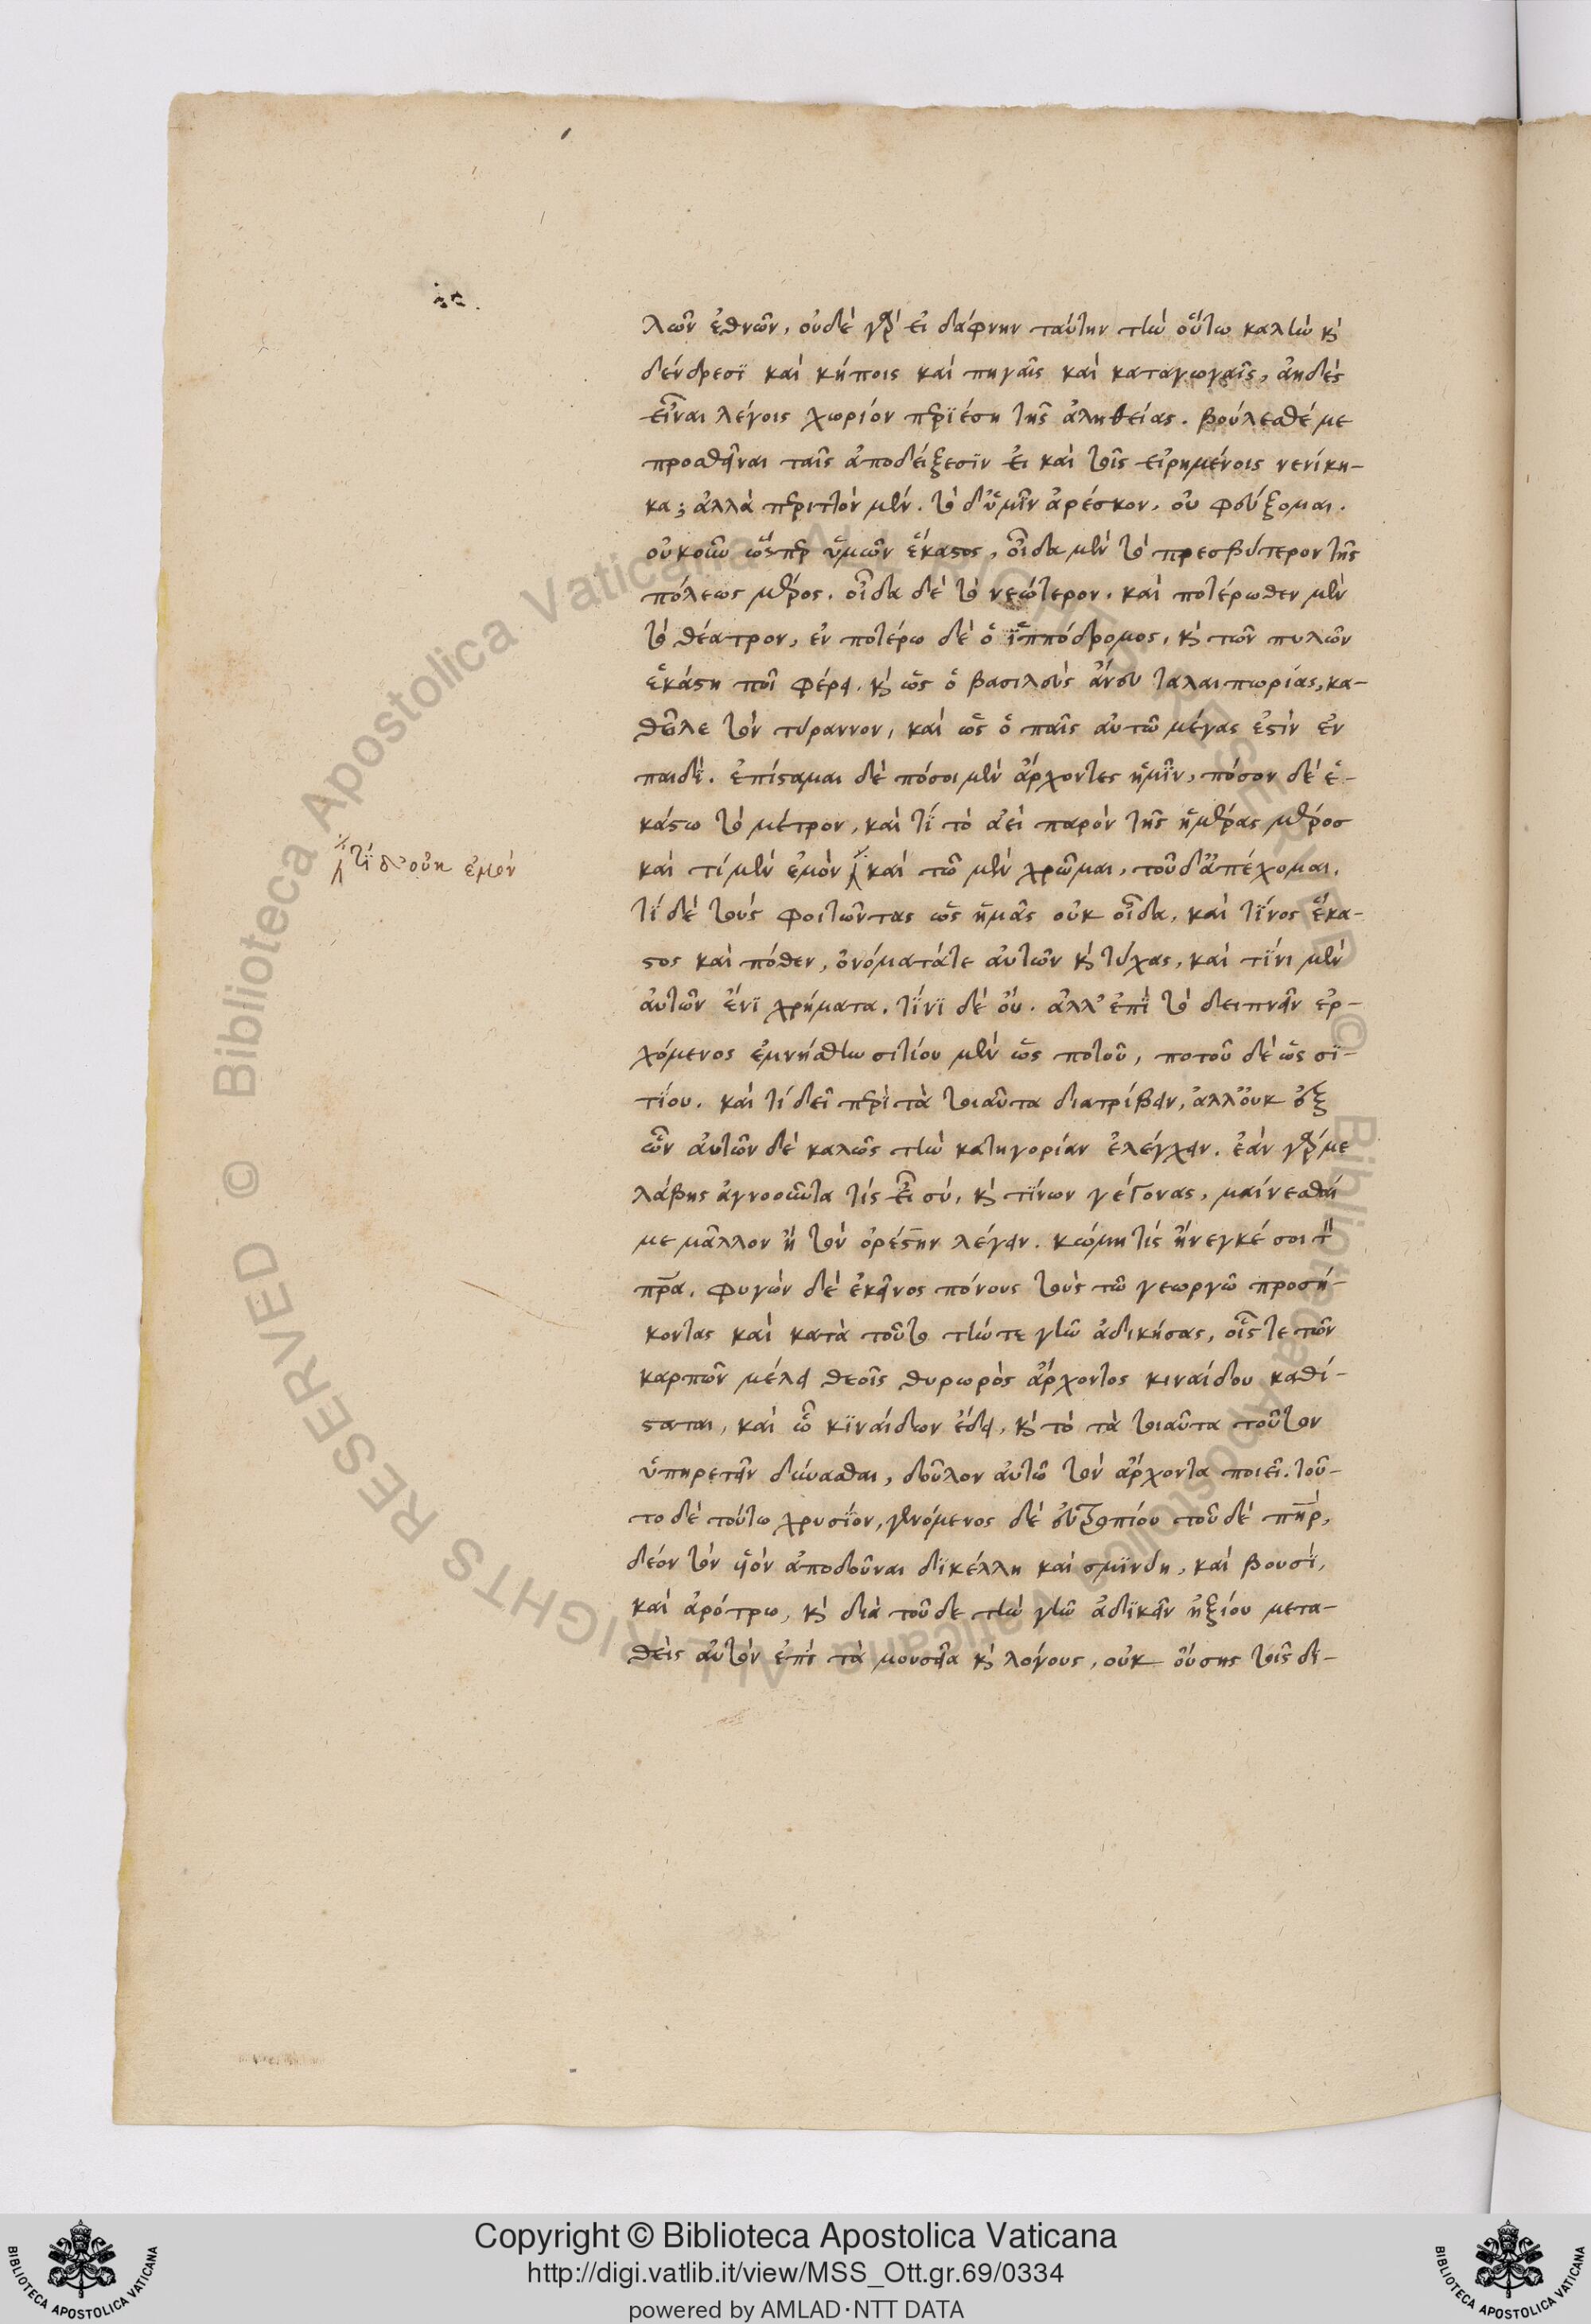 λων ἐθνῶν, οὐδὲ γὰρ εἰ δάφνην ταύτην τὴν οὕτω καλὴν καὶ
δένδρεσϊ καὶ κήποις καὶ πηγαῖς καὶ καταγωγαῖς, ἀηδὲς
εἶναι λέγοις χωρίον περϊέση τῆς ἀληθείας. βούλεσθέ με
προσθεῖναι ταῖς ἀποδείξεσϊν εἰ καὶ τοῖς εἰρημένοις νενίκη-
κα; ἀλλὰ περιττὸν μὲν. τὸ δ' ὑμῖν ἀρέσκον, οὐ φεύξομαι.
οὐκοῦν ὥσπερ ὑμῶν ἕκαστος, οἶδα μὲν τὸ πρεσβύτερον τῆς
πόλεως μέρος. οἶδα δὲ τὸ νεώτερον. καὶ ποτέρωθεν μὲν
τὸ θέατρον, ἐν ποτέρω δὲ ὁ ἱππόδρομος, καὶ τῶν πυλῶν
ἑκάστη ποῖ φέρει. καὶ ὡς ὁ βασιλεὺς ἄνευ ταλαιπωρίας, κα-
θεῖλε τὸν τύραννον, καὶ ὡς ὁ παῖς αὐτῶ μέγας ἐστὶν ἐν
παιδὶ. ἐπίσταμαι δὲ πόσοι μὲν ἄρχοντες ἡμῖν, πόσον δὲ ἑ-
κάστω τὸ μέτρον, καὶ τί τὸ ἀεὶ παρὸν τῆς ἡμέρας μέρος
τϊ δ' οὐκ ἐμὸν
καὶ τί μὲν ἐμὸν καὶ τῶ μὲν χρῶμαι, τοῦ δ' ἀπέχομαι.
τί δὲ τοὺς φοιτῶντας ὡς ἡμᾶς οὐκ οἶδα, καὶ τίνος ἕκα-
στος καὶ πόθεν, ὀνόματάτε αὐτῶν καὶ τύχας, καὶ τίνι μὲν
αὐτῶν ἔνϊ χρήματα. τίνϊ δὲ οὔ. ἀλλ' ἐπὶ τὸ δειπνεῖν ἐρ-
χόμενος ἐμνήσθην σιτίου μὲν ὡς ποτοῦ, ποτοῦ δὲ ὡς σϊ-
τίου. καὶ τί δεῖ περὶ τὰ τοιαῦτα διατρίβειν, ἀλλ' οὐκ ἐξ
ὧν αὐτῶν δὲ καλῶς τὴν κατηγορίαν ἐλέγχειν. ἐὰν γάρ με
λάβης ἀγνοοῦντα τίς εἶ σύ, καὶ τίνων γέγονας, μαίνεσθαί
με μᾶλλον ἢ τὸν ὀρέστην λέγειν. κώμη τίς ἤνεγκέ σοι τὸν
πρα. φυγὼν δὲ ἐκεῖνος πόνους τοὺς τῶ γεωργῶ προσή-
κοντας καὶ κατὰ τοῦτο τήν τε γῆν ἀδικήσας, οἷς τε τῶν
καρπῶν μέλει θεοῖς θυρωρὸς ἄρχοντος κιναίδου καθί-
σταται, καὶ ὧ κϊναίδων ἔδει, καὶ τὸ τὰ τοιαῦτα τοῦτον
ὑπηρετεῖν δύνασθαι, δοῦλον αὐτῶ τὸν ἄρχοντα ποιεῖ. τοῦ-
το δὲ τούτω χρυσίον, γενόμενος δὲ τοῦδε πηρ,
δέον τὸν υἱὸν ἀποδοῦναι δϊκέλλη καὶ σμϊνύη, καὶ βουσϊ,
καὶ ἀρότρω, καὶ διὰ τοῦδε τὴν γῆν ἀδϊκεῖν ἠξίου μετα-
θεὶς αὐτὸν ἐπὶ τὰ μουσεῖα καὶ λόγους, οὐκ οὔσης τοῖς δϊ-
Copyright © Biblioteca Apostolica Vaticana
http://digi.vatlib.it/view/MSS_Ott.gr.69/0334
powered by AMLAD·NTT DATA
BIBLIOTECA APOSTOLICA VATICANA
BIBLIOTECA APOSTOLICA VATICANA
Biblioteca Apostolica Vaticana ALL RIGHTS RESERVED ©
Biblioteca Apostolica Vaticana ALL RIGHTS RESERVED ©